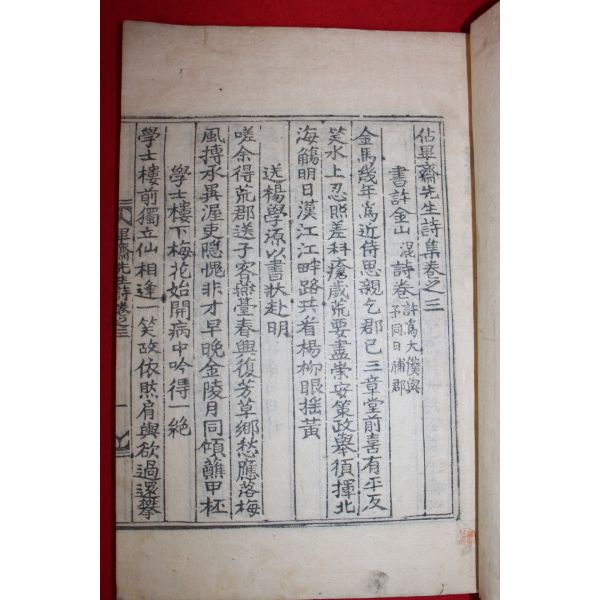 佔畢齋先生詩集卷之三
書許金山混詩卷許爲大僕與予同日補郡
金馬幾年爲近侍思親乞郡已三章堂前喜有平反
笑水上忍照差科瘡歲荒要盡崇安策政舉須揮北
海觴明日漢江江畔路共看楊柳眼搖黃
送楊學源以書狀赴明
嗟余得荒郡送子客燕臺春興復芳草鄕愁應落梅
風摶承異渥吏隐愧非才早晩金陵月同傾蘸甲杯
學士樓下梅花始開病中吟得一絶
學士樓前獨立仙相逢一笑故依然肩輿欲過還攀
畢齋先生詩卷之三
一